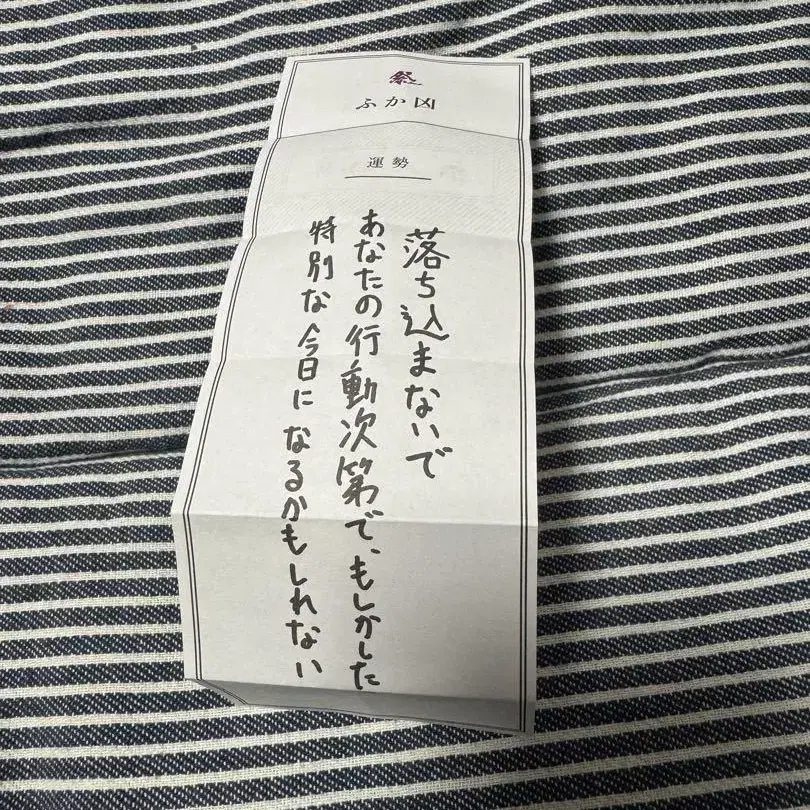 祭
ふか凶
運勢
落ち込まないで
あなたの行動次第で、もしかした
特別な今日になるかもしれない